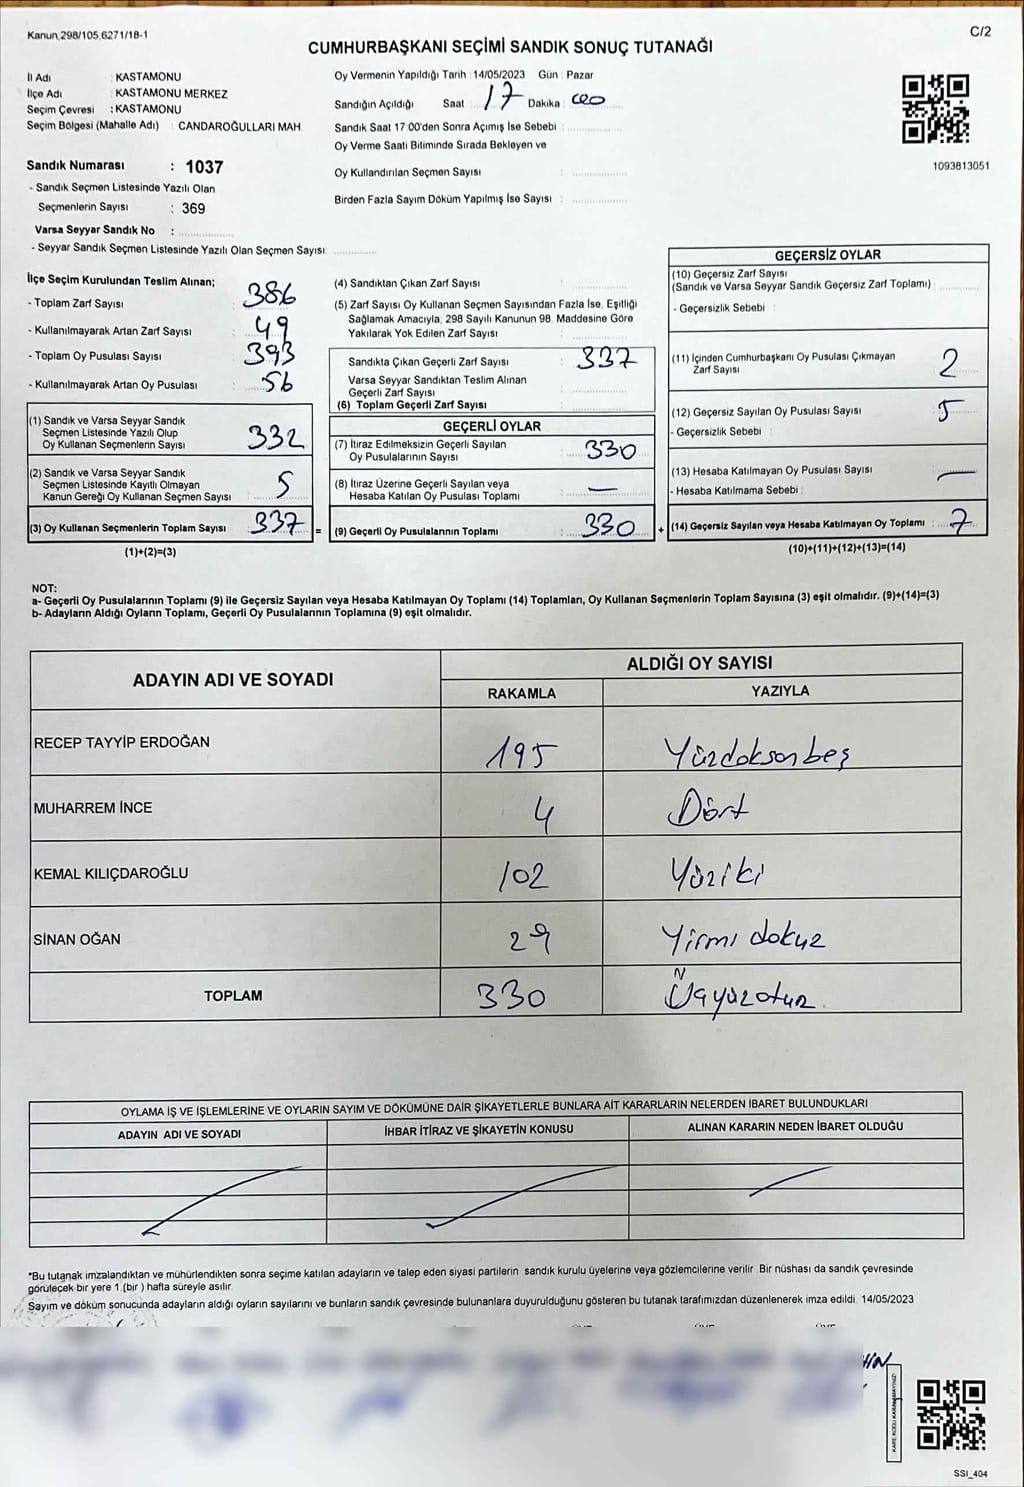 Kanun 298/105,6271/18-1
C/2
CUMHURBAŞKANI SEÇİMİ SANDIK SONUÇ TUTANAĞI
İl Adı : KASTAMONU
İlçe Adı : KASTAMONU MERKEZ
Seçim Çevresi : KASTAMONU
Seçim Bölgesi (Mahalle Adı) : CANDAROĞULLARI MAH.
Oy Vermenin Yapıldığı Tarih : 14/05/2023 Gün : Pazar
Sandığın Açıldığı Saat : 17 Dakika : 00
Sandık Saat 17:00'den Sonra Açımış İse Sebebi :
Oy Verme Saati Bitiminde Sırada Bekleyen ve
Oy Kullandırılan Seçmen Sayısı :
Birden Fazla Sayım Döküm Yapılmış İse Sayısı :
1093813051
Sandık Numarası : 1037
- Sandık Seçmen Listesinde Yazılı Olan
Seçmenlerin Sayısı : 369
Varsa Seyyar Sandık No :
- Seyyar Sandık Seçmen Listesinde Yazılı Olan Seçmen Sayısı:
İlçe Seçim Kurulundan Teslim Alınan;
- Toplam Zarf Sayısı : 386
- Kullanılmayarak Artan Zarf Sayısı : 49
- Toplam Oy Pusulası Sayısı : 393
- Kullanılmayarak Artan Oy Pusulası : 56
(1) Sandık ve Varsa Seyyar Sandık
Seçmen Listesinde Yazılı Olup
Oy Kullanan Seçmenlerin Sayısı : 332
(2) Sandık ve Varsa Seyyar Sandık
Seçmen Listesinde Kayıtlı Olmayan
Kanun Gereği Oy Kullanan Seçmen Sayısı : 5
(3) Oy Kullanan Seçmenlerin Toplam Sayısı : 337 =
(1)+(2)=(3)
(4) Sandıktan Çıkan Zarf Sayısı :
(5) Zarf Sayısı Oy Kullanan Seçmen Sayısından Fazla İse, Eşitliği
Sağlamak Amacıyla, 298 Sayılı Kanunun 98. Maddesine Göre
Yakılarak Yok Edilen Zarf Sayısı :
Sandıkta Çıkan Geçerli Zarf Sayısı : 337
Varsa Seyyar Sandıktan Teslim Alınan
Geçerli Zarf Sayısı :
(6) Toplam Geçerli Zarf Sayısı :
GEÇERLİ OYLAR
(7) İtiraz Edilmeksizin Geçerli Sayılan
Oy Pusulalarının Sayısı : 330
(8) İtiraz Üzerine Geçerli Sayılan veya
Hesaba Katılan Oy Pusulası Toplamı : —
(9) Geçerli Oy Pusulalarının Toplamı : 330 +
GEÇERSİZ OYLAR
(10) Geçersiz Zarf Sayısı
(Sandık ve Varsa Seyyar Sandık Geçersiz Zarf Toplamı) :
- Geçersizlik Sebebi :
(11) İçinden Cumhurbaşkanı Oy Pusulası Çıkmayan
Zarf Sayısı : 2
(12) Geçersiz Sayılan Oy Pusulası Sayısı : 5
- Geçersizlik Sebebi :
(13) Hesaba Katılmayan Oy Pusulası Sayısı : —
- Hesaba Katılmama Sebebi :
(14) Geçersiz Sayılan veya Hesaba Katılmayan Oy Toplamı : 7
(10)+(11)+(12)+(13)=(14)
NOT:
a- Geçerli Oy Pusulalarının Toplamı (9) ile Geçersiz Sayılan veya Hesaba Katılmayan Oy Toplamı (14) Toplamları, Oy Kullanan Seçmenlerin Toplam Sayısına (3) eşit olmalıdır. (9)+(14)=(3)
b- Adayların Aldığı Oyların Toplamı, Geçerli Oy Pusulalarının Toplamına (9) eşit olmalıdır.
ADAYIN ADI VE SOYADI
ALDIĞI OY SAYISI
RAKAMLA YAZIYLA
RECEP TAYYİP ERDOĞAN 195 Yüzdoksanbeş
MUHARREM İNCE 4 Dört
KEMAL KILIÇDAROĞLU 102 Yüziki
SİNAN OĞAN 29 Yirmi dokuz
TOPLAM 330 Üçyüzotuz
OYLAMA İŞ VE İŞLEMLERİNE VE OYLARIN SAYIM VE DÖKÜMÜNE DAİR ŞİKAYETLERLE BUNLARA AİT KARARLARIN NELERDEN İBARET BULUNDUKLARI
ADAYIN ADI VE SOYADI İHBAR İTİRAZ VE ŞİKAYETİN KONUSU ALINAN KARARIN NEDEN İBARET OLDUĞU
*Bu tutanak imzalandıktan ve mühürlendikten sonra seçime katılan adayların ve talep eden siyasi partilerin sandık kurulu üyelerine veya gözlemcilerine verilir. Bir nüshası da sandık çevresinde
görülecek bir yere 1 (bir ) hafta süreyle asılır.
Sayım ve döküm sonucunda adayların aldığı oyların sayılarını ve bunların sandık çevresinde bulunanlara duyurulduğunu gösteren bu tutanak tarafımızdan düzenlenerek imza edildi. 14/05/2023
KARE KODU KARALAMAYINIZ!
SSI_404